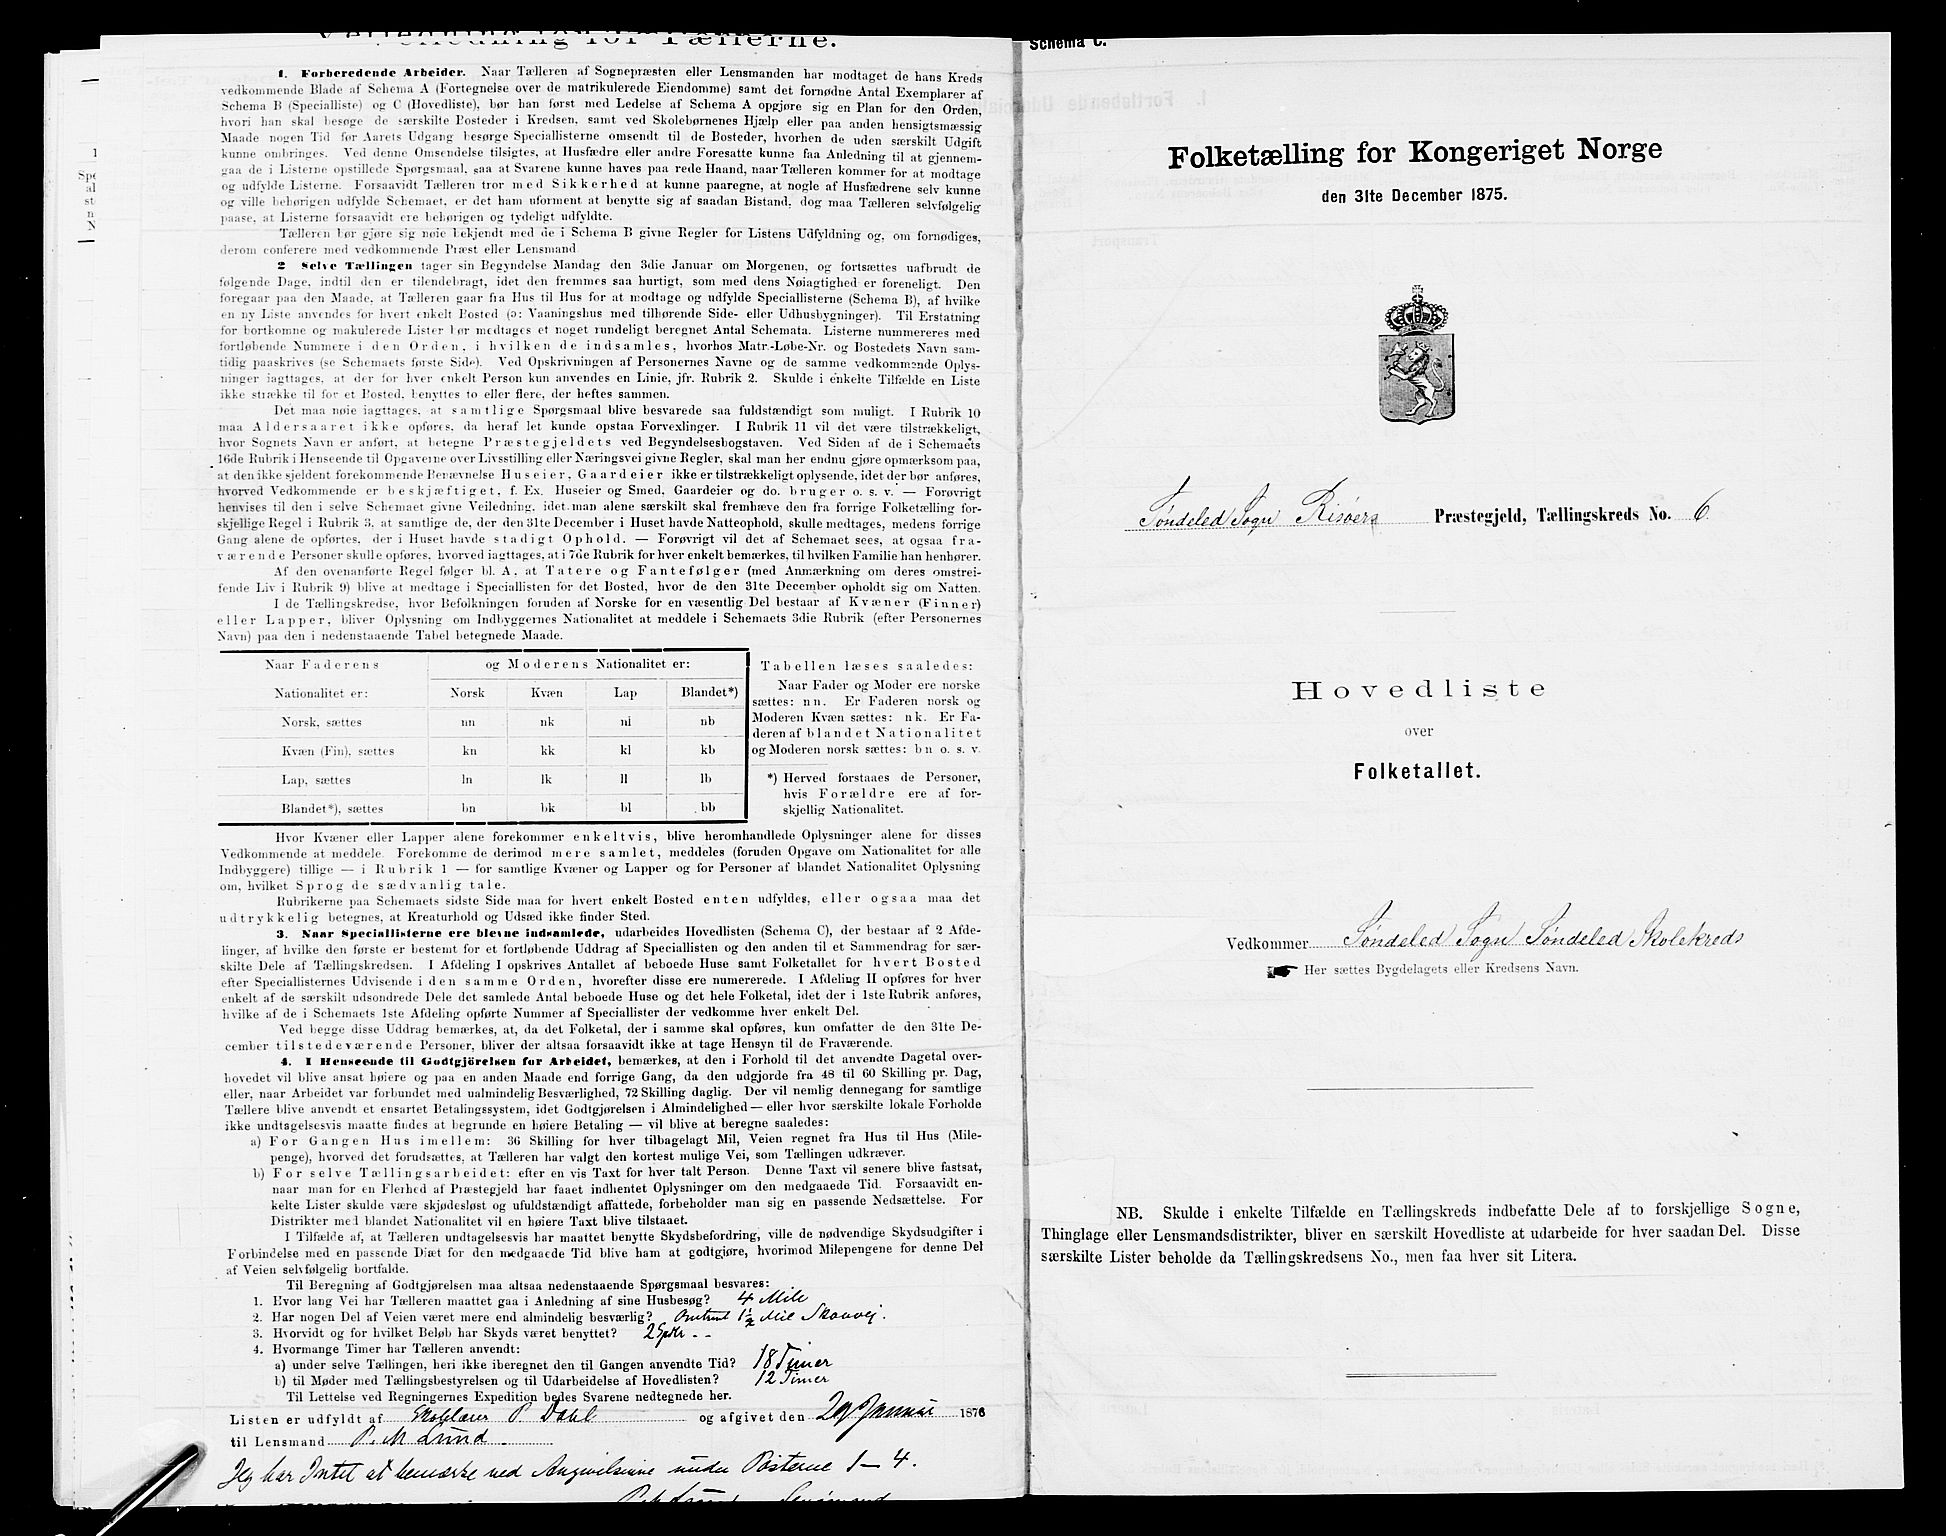 Veiledning for Tællerne.
1. Forberedende Arbeider. Naar Tælleren af Sognepræsten eller Lensmanden har modtaget de hans Kreds
vedkommende Blade af Schema A (Fortegnelse over de matrikulerede Eiendomme) samt det fornødne Antal Exemplarer af
Schema B (Specialliste) og C (Hovedliste), bør han først med Ledelse af Schema A opgjøre sig en Plan for den Orden,
hvori han skal besøge de særskilte Posteder i Kredsen, samt ved Skolebørnenes Hjælp eller paa anden hensigtsmæssig
Maade nogen Tid før Aarets Udgang besørge Speciallisterne omsendt til de Bosteder, hvorhen de uden særskilt Udgift
kunne ombringes. Ved denne Omsendelse tilsigtes, at Husfædre eller andre Foresatte kunne faa Anledning til at gjennem-
gaa de i Listerne opstillede Spørgsmaal, saa at Svarene kunne haves paa rede Haand, naar Tælleren kommer for at modtage
og udfylde Listerne. Forsaavidt Tælleren tror med Sikkerhed at kunne paaregne, at nogle af Husfædrene selv kunne
og ville behørigen udfylde Schemaet, er det ham uforment at benytte sig af saadan Bistand, dog maa Tælleren selvfølgelig
paase, at Listerne forsaavidt ere behørigen og tydeligt udfyldte.
Tælleren bør gjøre sig nøie bekjendt med de i Schema B givne Regler for Listens Udfyldning og, om fornødiges,
derom conferere med vedkommende Præst eller Lensmand
2 Selve Tællingen tager sin Begyndelse Mandag den 3die Januar om Morgenen, og fortsættes uafbrudt de
følgende Dage, indtil den er tilendebragt, idet den fremmes saa hurtigt, som med dens Nøiagtighed er foreneligt. Den
foregaar paa den Maade, at Tælleren gaar fra Hus til Hus for at modtage og udfylde Speciallisterne (Schema B), af hvilke
en ny Liste anvendes for hvert enkelt Bosted (ɔ: Vaaningshus med tilhørende Side- eller Udhusbygninger). Til Erstatning
for bortkomne og makulerede Lister bør medtages et noget rundeligt beregnet Antal Schemata. Listerne nummereres med
fortløbende Nummere i den Orden, i hvilken de indsamles, hvorhos Matr.-Løbe-Nr. og Bostedets Navn sam-
tidig paaskrives (se Schemaets første Side). Ved Opskrivningen af Personernes Navne og de samme vedkommende Oplys-
ninger iagttages, at der for hver enkelt Person kun anvendes en Linie, jfr. Rubrik 2. Skulde i enkelte Tilfælde en Liste
ikke strække til for et Bosted, benyttes to eller flere, der heftes sammen.
Det maa nøie iagttages, at samtlige Spørgsmaal blive besvarede saa fuldstændigt som muligt. I Rubrik 10
maa Aldersaaret ikke opføres, da heraf let kunde opstaa Forvexlinger. I Rubrik 11 vil det være tilstrækkeligt,
hvor Sognets Navn er anført, at betegne Præstegjeldets ved Begyndelsesbogstaven. Ved Siden af de i Schemaets
16de Rubrik i Henseende til Opgaverne over Livsstilling eller Næringsvei givne Regler, skal man her endnu gjøre opmærksom paa,
at den ikke sjeldent forekommende Benævnelse Huseier, Gaardeier ikke er tilstrækkeligt oplysende, idet der bør anføres,
hvorved Vedkommende er beskjæftiget, f. Ex. Huseier og Smed, Gaardeier og do. bruger o. s. v. — Forøvrigt
henvises til den i selve Schemaet givne Veiledning, idet man alene særskilt skal fremhæve den fra forrige Folketælling for-
skjellige Regel i Rubrik 3, at samtlige de, der den 31te December i Huset havde Natteophold, skulle medtages, medens forrige
Gang alene de opførtes, der i Huset havde stadigt Ophold. — Forøvrigt vil det af Schemaet sees, at ogsaa fra-
værende Personer skulle opføres, hvorved iagttages, at i 7de Rubrik for hver enkelt bemærkes, til hvilken Familie han henhører.
Af den ovenanførte Regel følger bl. A. at Tatere og Fantefølger (med Anmærkning om deres omstrei-
fende Liv i Rubrik 9) blive at medtage i Speciallisten for det Bosted, hvor de den 31te December opholdt sig om Natten.
I de Tællingskredse, hvor Befolkningen foruden af Norske for en væsentlig Del bestaar af Kvæner (Finner)
eller Lapper, bliver Oplysning om Indbyggernes Nationalitet at meddele i Schemaets 3die Rubrik (efter Personernes
Navn) paa den i nedenstaaende Tabel betegnede Maade.
Naar Faderens og Moderens Nationalitet er:
Nationalitet er: Norsk Kvæn Lap Blandet*)
Norsk, sættes nn nk nl nb
Kvæn (Fin), sættes kn kk kl kb
Lap, sættes ln lk ll lb
Blandet*), sættes bn bk bl bb
Tabellen læses saaledes:
Naar Fader og Moder ere norske
sættes: nn. Er Faderen norsk og
Moderen Kvæn sættes: nk. Er Fa-
deren af blandet Nationalitet
og Moderen norsk sættes: bn o. s. v.
*) Herved forstaaes de Personer,
hvis Forældre ere af for-
skjellig Nationalitet.
Hvor Kvæner eller Lapper alene forekommer enkeltvis, blive heromhandlede Oplysninger alene for disses
Vedkommende at meddele. Forekomme de derimod mere samlet, meddeles (foruden Opgave om Nationalitet for alle
Indbyggere) tillige — i Rubrik 1 — for samtlige Kvæner og Lapper og for Personer af blandet Nationalitet Oplysning
om, hvilket Sprog de sædvanlig tale.
Rubrikerne paa Schemaets sidste Side maa for hvert enkelt Bosted enten udfyldes, eller ogsaa maa det
udtrykkelig betegnes, at Kreaturhold og Udsæd ikke finder Sted.
3. Naar Speciallisterne ere blevne indsamlede, udarbeides Hovedlisten (Schema C), der bestaar af 2 Afde-
linger, af hvilke den første er bestemt for et fortløbende Uddrag af Speciallisten og den anden til et Sammendrag for sær-
skilte Dele af Tællingskredsen. I Afdeling I opskrives Antallet af beboede Huse samt Folketallet for hvert Bosted
efter Speciallisternes Udvisende i den samme Orden, hvorefter disse ere numererede. I Afdeling II opføres for hver
enkelt af de særskilt udsondrede Dele det samlede Antal beboede Huse og det hele Folketal, idet der i 1ste Rubrik anføres,
hvilke af de i Schemaets 1ste Afdeling opførte Nummer af Speciallister der vedkomme hver enkelt Del.
Ved begge disse Uddrag bemærkes, at, da det Folketal, der i samme skal opføres, kun omfatter de den 31te De-
cember tilstedeværende Personer, bliver der altsaa forsaavidt ikke at tage Hensyn til de Fraværende.
4. I Henseende til Godtgjörelsen for Arbeidet, bemærkes, at den i Forhold til det anvendte Dagetal over-
hovedet vil blive ansat høiere og paa en anden Maade end forrige Gang, da den udgjorde fra 48 til 60 Skilling pr. Dag,
eller, naar Arbeidet var forbundet med ualmindelig Besværlighed, 72 Skilling daglig. Der vil nemlig dennegang for samtlige
Tællere blive anvendt et ensartet Betalingssystem, idet Godtgjørelsen i Almindelighed — eller hvor særskilte lokale Forholde
ikke undtagelsesvis maatte findes at begrunde en høiere Betaling — vil blive at beregne saaledes:
a) For Gangen Hus imellem: 36 Skilling for hver tilbagelagt Mil, Veien regnet fra Hus til Hus (Mile-
penge), hvorved det forudsættes, at Tælleren har valgt den kortest mulige Vei, som Tællingen udkræver.
b) For selve Tællingsarbeidet: efter en vis Taxt for hver talt Person. Denne Taxt vil senere blive fastsat,
naar man for en Flerhed af Præstegjeld har faaet indhentet Oplysninger om den medgaaede Tid. Forsaavidt en-
kelte Lister skulde være skjødesløst og ufuldstændigt affattede, forbeholder man sig en passende Nedsættelse. For
Distrikter med blandet Nationalitet vil en høiere Taxt blive tilstaaet.
I Tilfælde af, at Tælleren undtagelsesvis har maattet benytte Skydsbefordring, ville de nødvendige Skydsudgifter i
Forbindelse med en passende Diæt for den medgaaede Tid blive ham at godtgjøre, hvorimod Milepengene for denne Del
af Veien selvfølgelig bortfalde.
Til Beregning af Godtgjørelsen maa altsaa nedenstaaende Spørgsmaal besvares:
1. Hvor lang Vei har Tælleren maattet gaa i Anledning af sine Husbesøg? 4 Mile
2. Har nogen Del af Veien været mere end almindelig besværlig? Omtrent 1½ Mil Skovvej.
3. Hvorvidt og for hvilket Beløb har Skyds været benyttet? 2 Spdr. - -
4. Hvormange Timer har Tælleren anvendt:
a) under selve Tællingen, heri ikke iberegnet den til Gangen anvendte Tid? 18 Timer
b) til Møder med Tællingsbestyrelsen og til Udarbeidelse af Hovedlisten? 12 Timer
Til Lettelse ved Regningernes Expedition bedes Svarene nedtegnede her.
Listen er udfyldt af P. Dahl og afgivet den Januar 1876
til Lensmand P. M Lund.
Jeg har Intet at bemærke ved Angivelserne under Posterne 1-4.
Lensmand
Schema C.
Folketælling for Kongeriget Norge
den 31te December 1875.
Søndeled Sogn Risøers Præstegjeld, Tællingskreds No. 6
Hovedliste
over
Folketallet.
Vedkommer Søndeled Sogn Søndeled Skolekreds
Her sættes Bygdelagets eller Kredsens Navn.
NB. Skulde i enkelte Tilfælde en Tællingskreds indbefatte Dele af to forskjellige Sogne,
Thinglage eller Lensmandsdistrikter, bliver en særskilt Hovedliste at udarbeide for hver saadan Del. Disse
særskilte Lister beholde da Tællingskredsens No., men faa hver sit Litera.